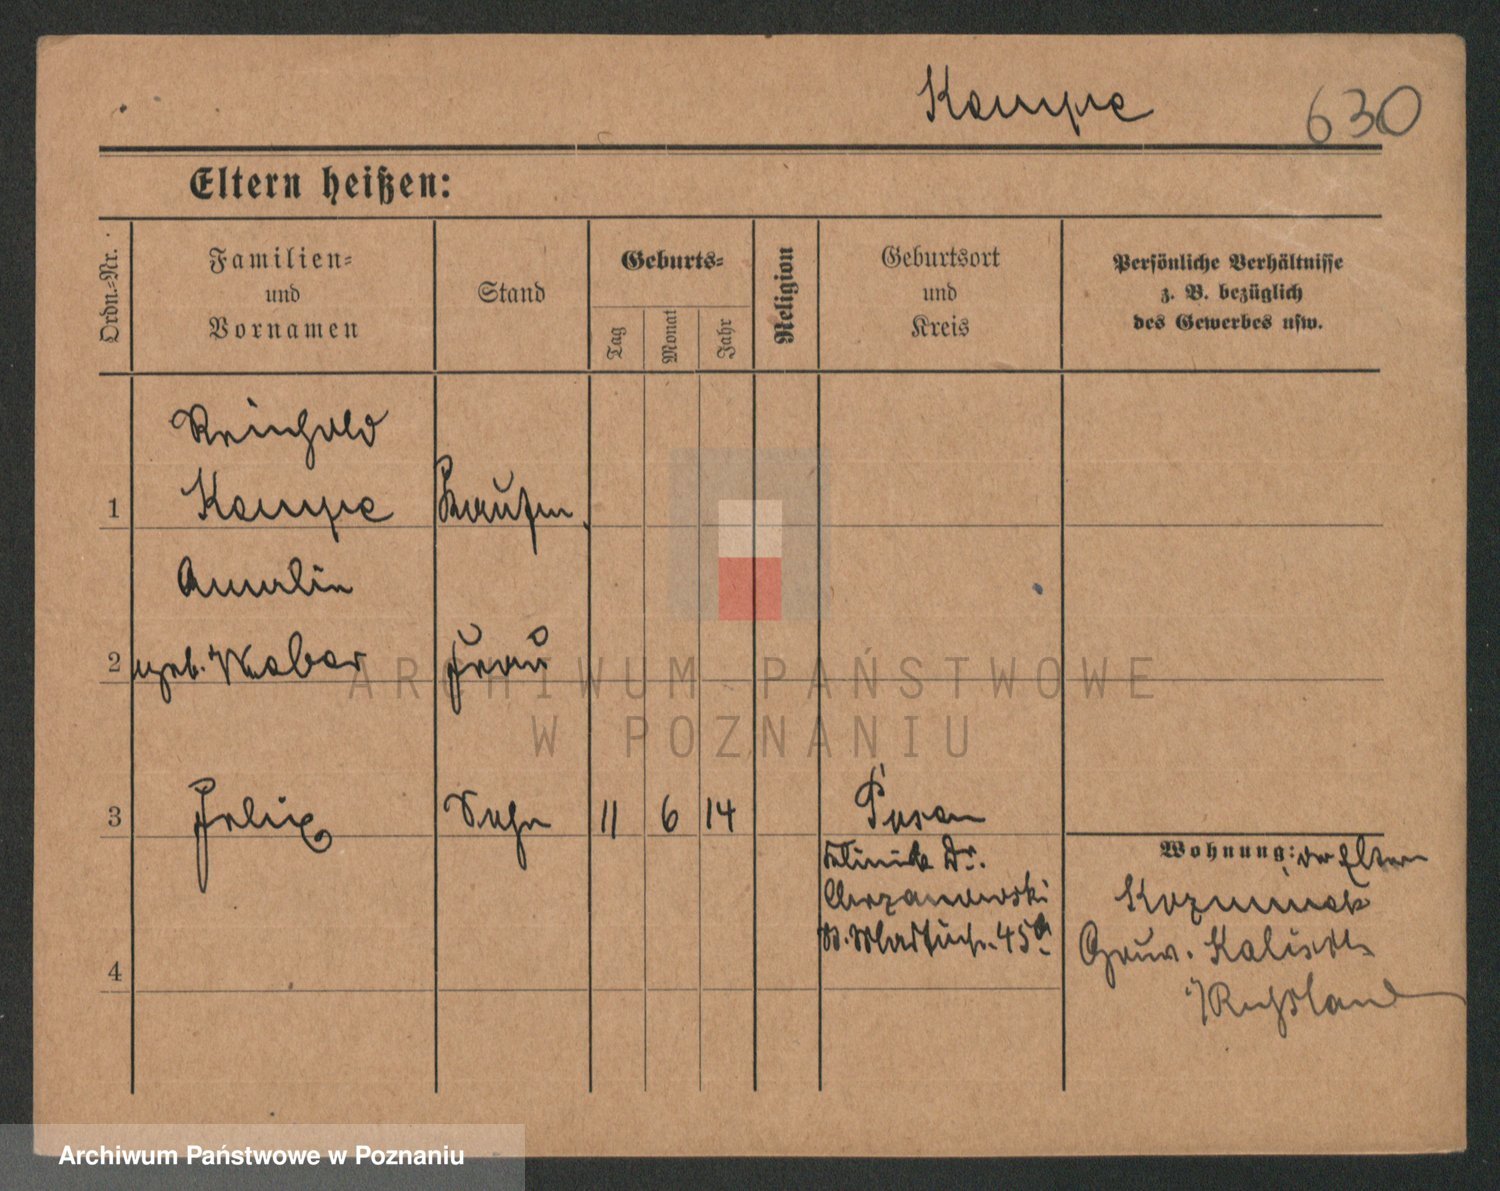 Kempe 630
Eltern heißen:
Ordn.-Nr.
Familien-
und
Vornamen
Stand
Geburts-
Tag
Monat
Jahr
Religion
Geburtsort
und
Kreis
Persönliche Verhältnisse
z. B. bezüglich
des Gewerbes usw.
Reinhold
1 Kempe
2 geb. Weber Frau
3 Felix Sohn 11 6 14 Posen
Klinik Dr.
Chrzanowski
St. Martinstr. 45a
Wohnung: der Eltern
Kozminek
Gouv. Kalisch
i/Russland
4
ARCHIWUM PAŃSTWOWE
W POZNANIU
Archiwum Państwowe w Poznaniu